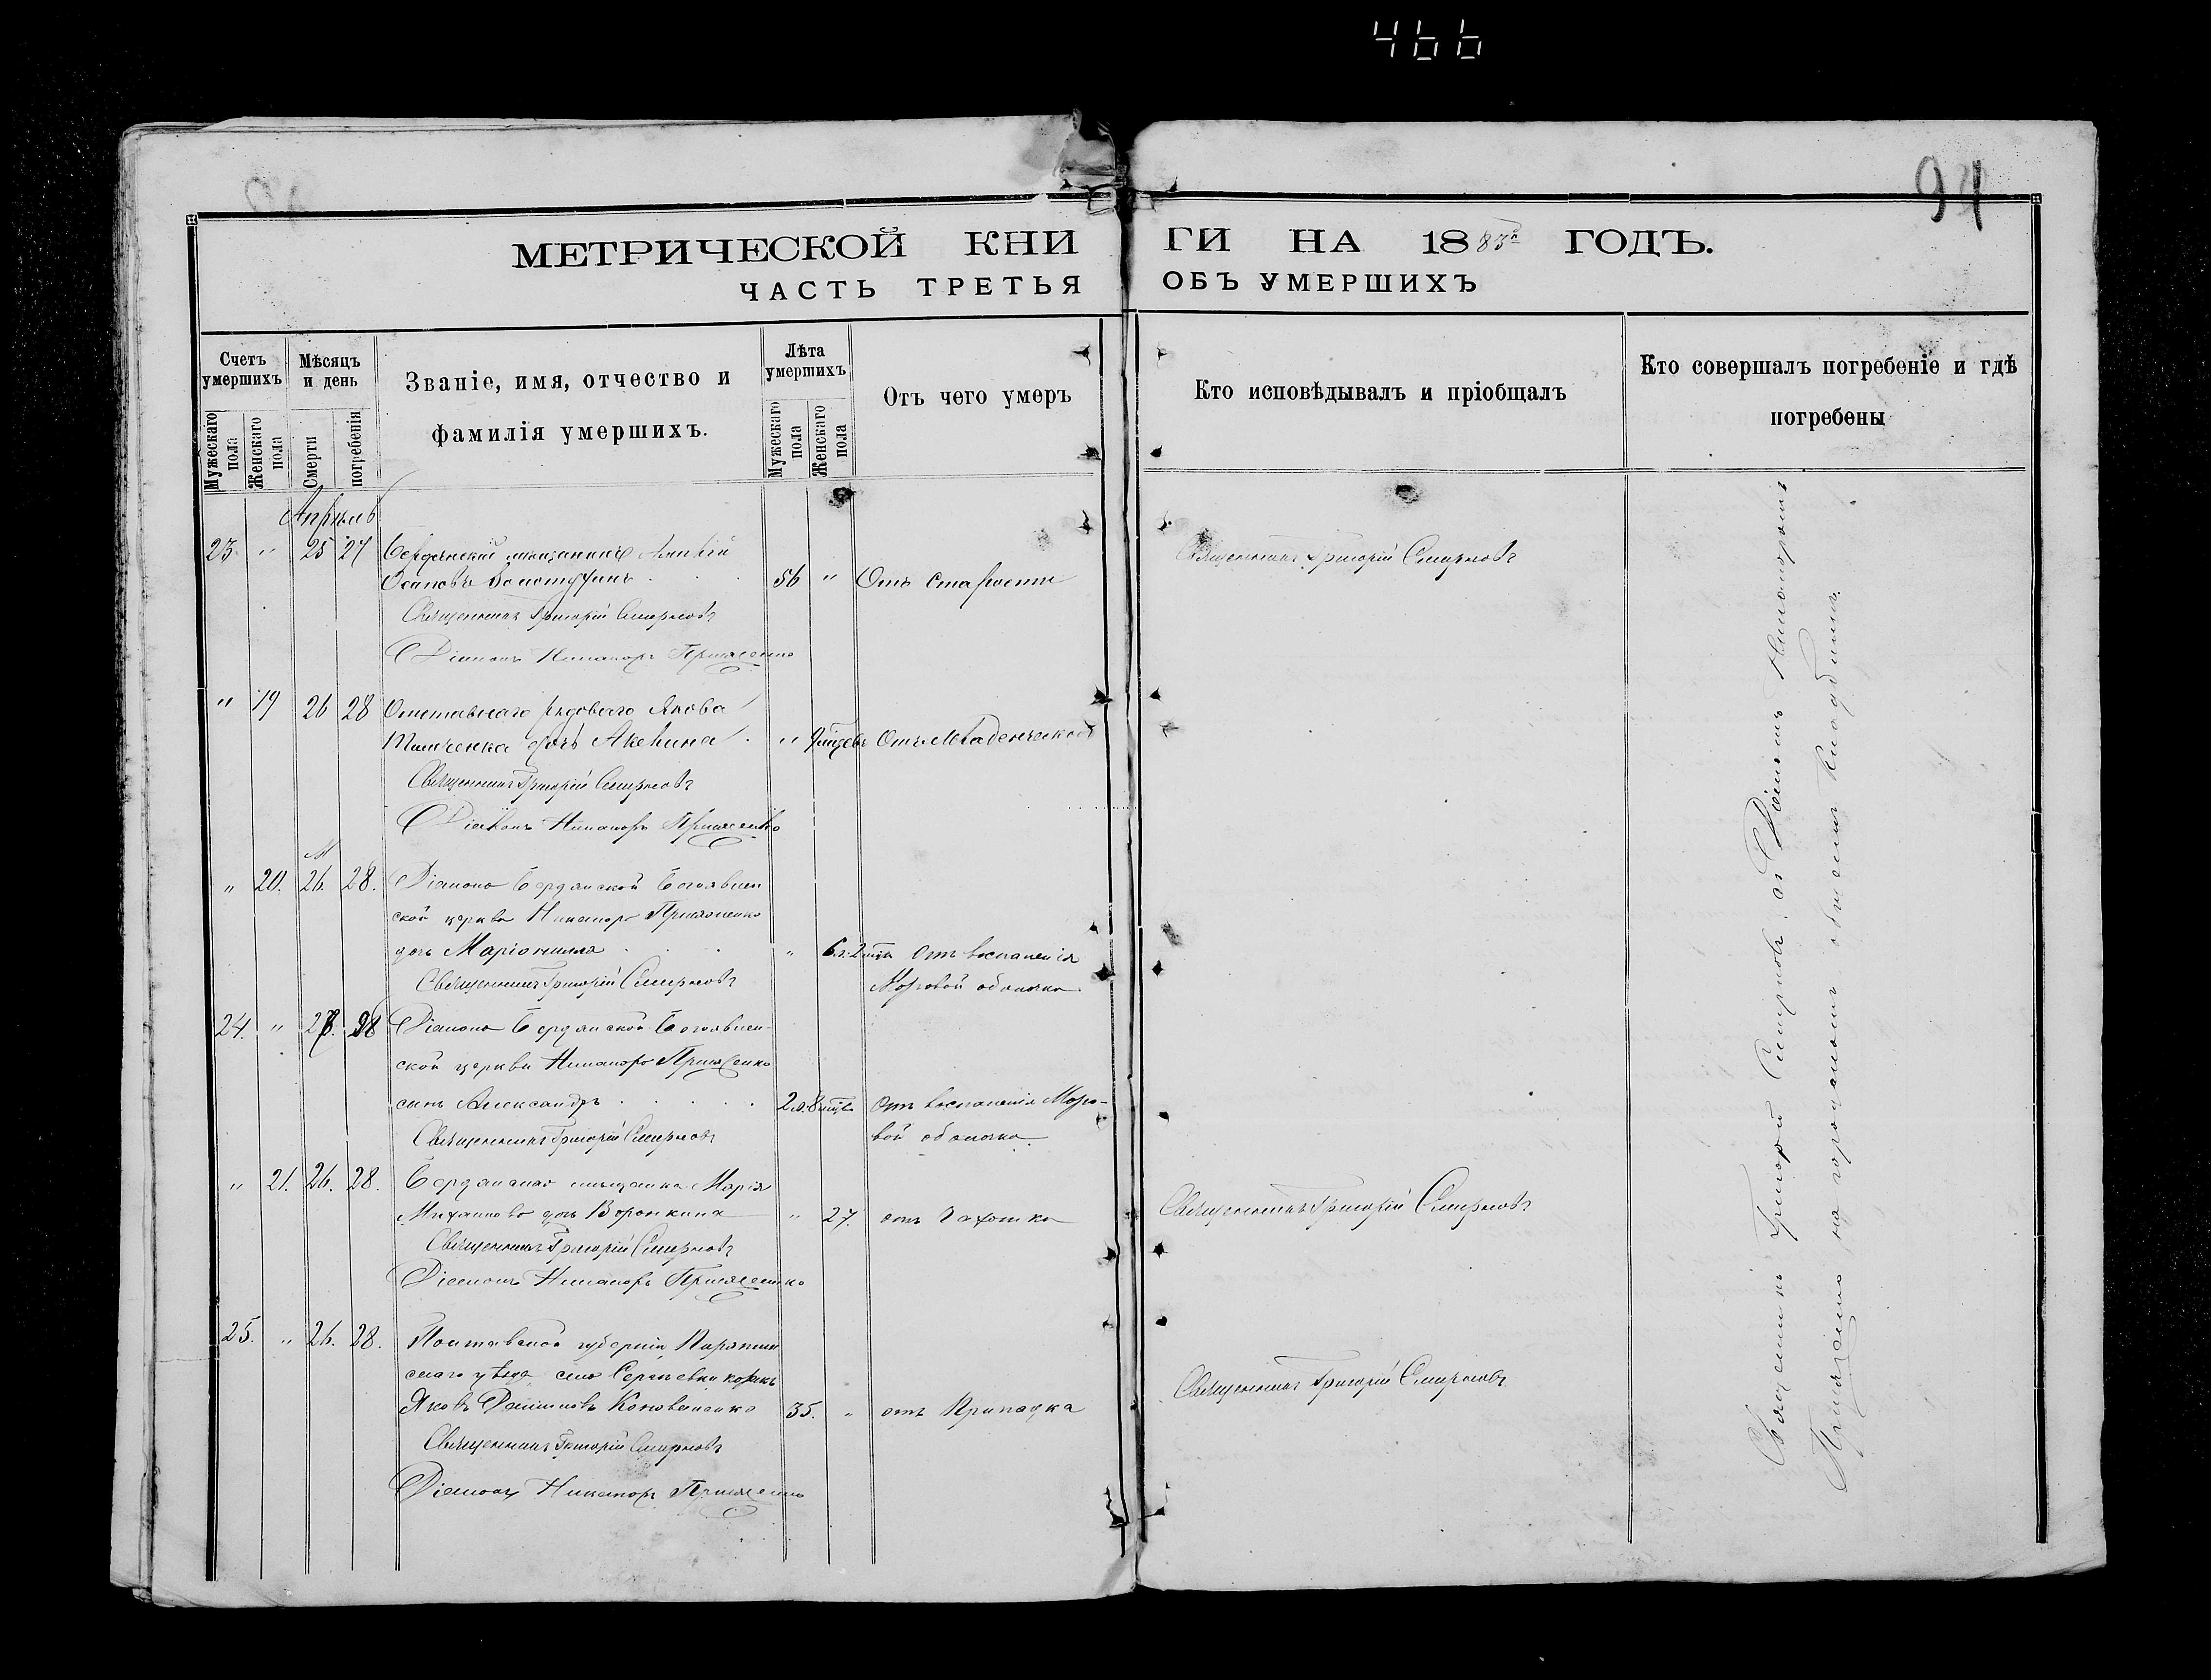 466
94
МЕТРИЧЕСКОЙ КНИГИ НА 1883й ГОДЪ.
ЧАСТЬ ТРЕТЬЯ ОБЪ УМЕРШИХЪ
Счетъ умершихъ
Мужескаго пола
Женскаго пола
Мѣсяцъ и день
Смерти
погребенія
Званіе, имя, отчество и
фамилія умершихъ.
Лѣта умершихъ
Мужескаго пола
Женскаго пола
Отъ чего умеръ
Кто исповѣдывалъ и пріобщалъ
Кто совершалъ погребеніе и гдѣ
погребены
Апрѣль
23 " 25 27 Бердянскій мѣщанинъ
Осиповъ 56 " Отъ старости
Священникъ Григорій Смирновъ
Священникъ Григорій Смирновъ
Діаконъ Никаноръ
" 19 26 28 Отставнаго рядоваго Якова
дочь " Отъ младенческой
Священникъ Григорій Смирновъ
Діаконъ Никаноръ
" 20. 26. 28. Діакона Бердянской Богоявлен
ской церкви Никанора
дочь " 6л. 2 мѣс. Отъ воспаленія
Священникъ Григорій Смирновъ
Мозговой оболочки.
24. " 27. 28 Діакона Бердянской Богоявлен-
ской церкви Никанора
сынъ Александръ 2л. 8 мѣс. Отъ воспаленія Мозго-
Священникъ Григорій Смирновъ
вой оболочки.
" 21. 26. 28. Бердянская мѣщанка Марія
Михайлова дочь Воронкина " 27. отъ Чахотки
Священникъ Григорій Смирновъ
Священникъ Григорій Смирновъ
Діаконъ Никаноръ
25. " 26. 28. Полтавской губерніи Пирятин
скаго уѣзда села козакъ
Яковъ 35. " отъ Припадка
Священникъ Григорій Смирновъ
Священникъ Григорій Смирновъ
Діаконъ Никаноръ
Священникъ Григорій Смирновъ съ Діакономъ Никаноромъ
на городскомъ общемъ кладбищѣ.